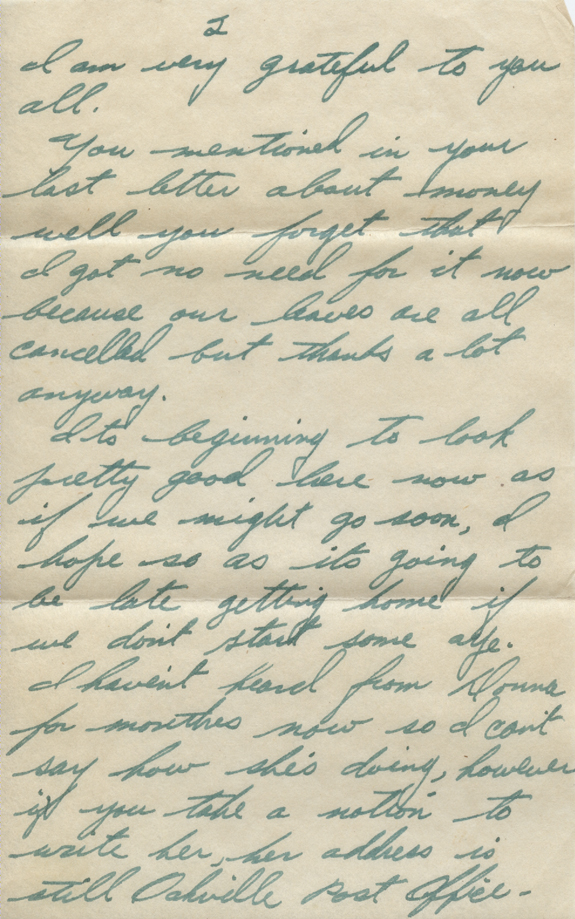 2
I am very grateful to you
all.
You mentioned in your
last letter about money
well you forget that
I got no need for it now
because our leaves are all
cancelled but thanks a lot
anyway.
Its beginning to look
pretty good here now as
if we might go soon, I
hope so as its going to
be late getting home if
we don't start some
I haven't heard from Donna
for monthes now so I can't
say how she's doing, however
if you take a notion to
write her, her address is
still Oakville Post Office -